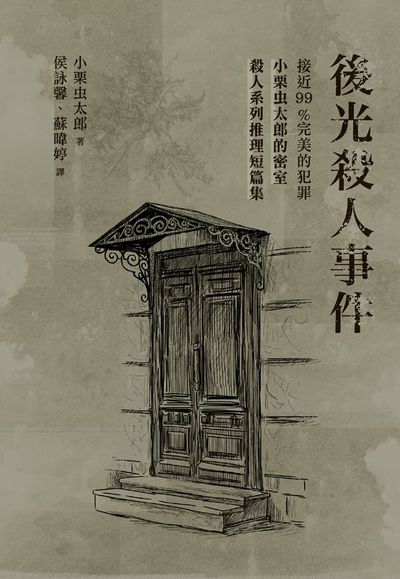 後光殺人事件
接近99%完美的犯罪
小栗虫太郎的密室
殺人系列推理短篇集
小栗虫太郎 著
侯詠馨、蘇暐婷 譯